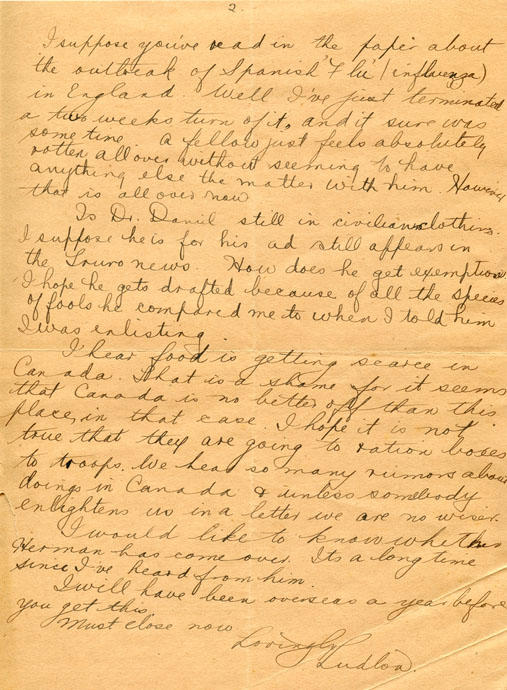 2.
I suppose you've read in the paper about
the outbreak of Spanish 'Flu' (influenza)
in England. Well I've just terminated
a two weeks turn of it, and it sure was
some time. A fellow just feels absolutely
rotten all over without seeming to have
anything else the matter with him. However
that is all over now
Is Dr. Danil still in civilian clothing.
I suppose he is for his ad still appears in
the Truro news. How does he get exemption
I hope he gets drafted because of all the species
of fools he compared me to when I told him
I was enlisting.
I hear food is getting scarce in
Canada. That is a shame for it seems
that Canada is no better off than this
place, in that case. I hope it is not
true that they are going to ration boxes
to troops. We hear so many rumors about
doings in Canada & unless somebody
enlightens us in a letter we are no wiser.
I would like to know whether
Herman has come over. Its a long time
since I've heard from him.
I will have been overseas a year before
you get this.
Must close now
Lovingly
Ludlow.